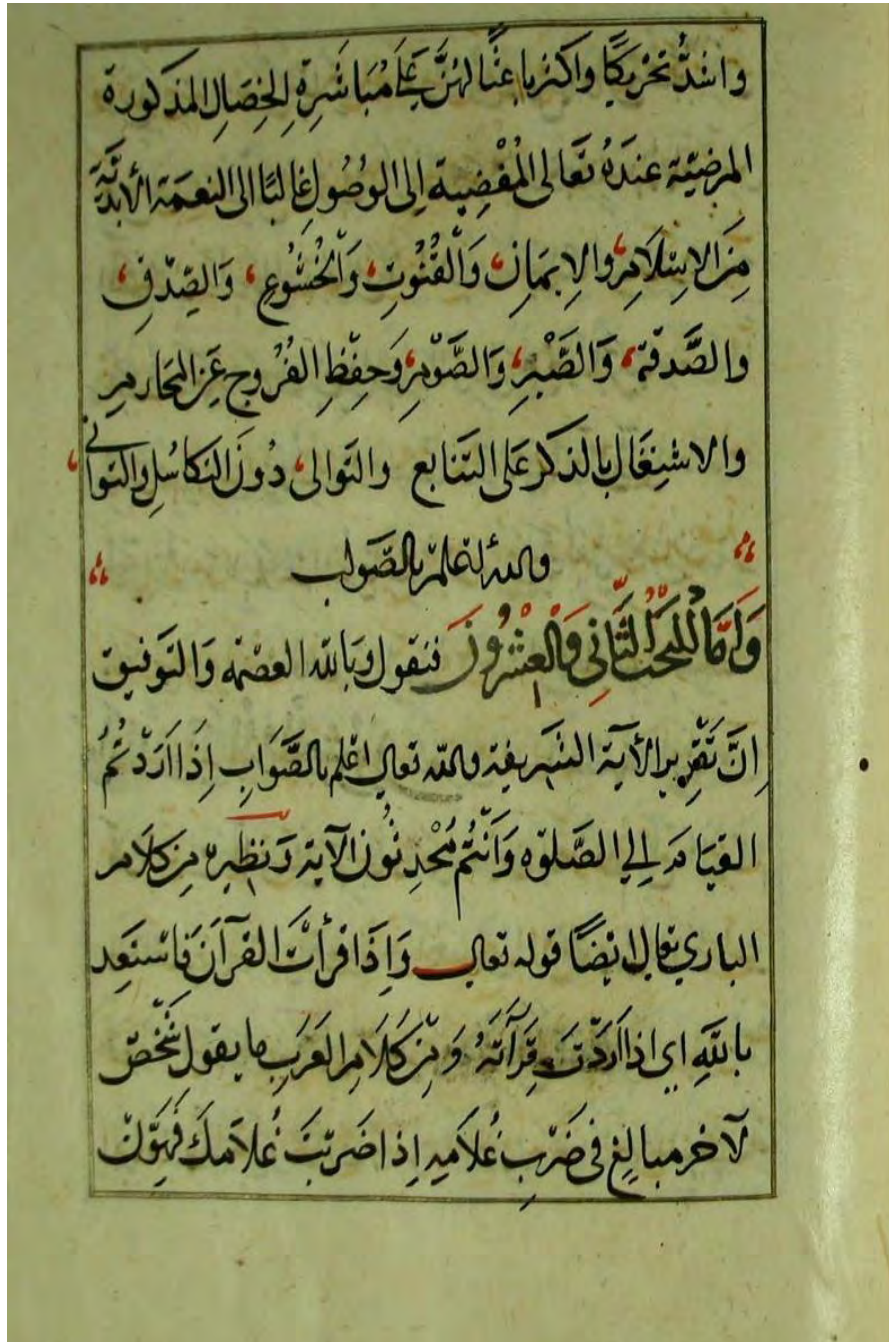 واشدُّ تحريكًا واكثر باعثًا لهنَّ على مُبَاشَرةِ الخِصَالِ المذكورة
المرضيّة عندَهُ تعَالى المُفْضِية اِلى الوصُولِ غالبًا الى النعمَة الأبديَّة
مِنَ الاِسْلَامِ، والاِيمَانِ، وَالْقُنُوتِ، وَالْخُشُوعِ، وَالصِدْقِ
والصَّدقة، وَالصَّبْرِ، وَالصَّوْمِ، وَحِفْظِ الفُرُوجِ عَنِ المحَارمِ
والاشتِغَال بالذكر عَلى التتَابع والتوالى، دُونَ التكاسُلِ والتوانى،
والله اعلم بالصَّواب
وَاَمَّا المبْحَثُ الثَّانِى وَالْعِشْرُونَ فنقول وَبالله العصْمَه وَالتوفيق
اِنَّ تَقْرِيرالاۤية الشريفة والله تعالى اعْلم بالصَّوَابِ اِذَا اَرَدْتُمُ
القيَامَ اِلي الصَّلوٰه وَاَنْتُمْ مُحْدِثُون الآية وَنظيره مِن كلَامِ
الباري تعالى ايضًا قوله تعالى وَاِذَا قرأتَ القرآنَ فَاسْتَعِد
باللهِ اي اذا اَرَدْتَ قِرَآتَهُ وَمِنْ كَلَامِ العَرَبِ ما يقول شَخْصٌ
لآخر مبالِغ فى ضَرْبِ غُلَامِهِ اِذا ضَرَبْتَ غُلَامكَ فَهَوِّنْ